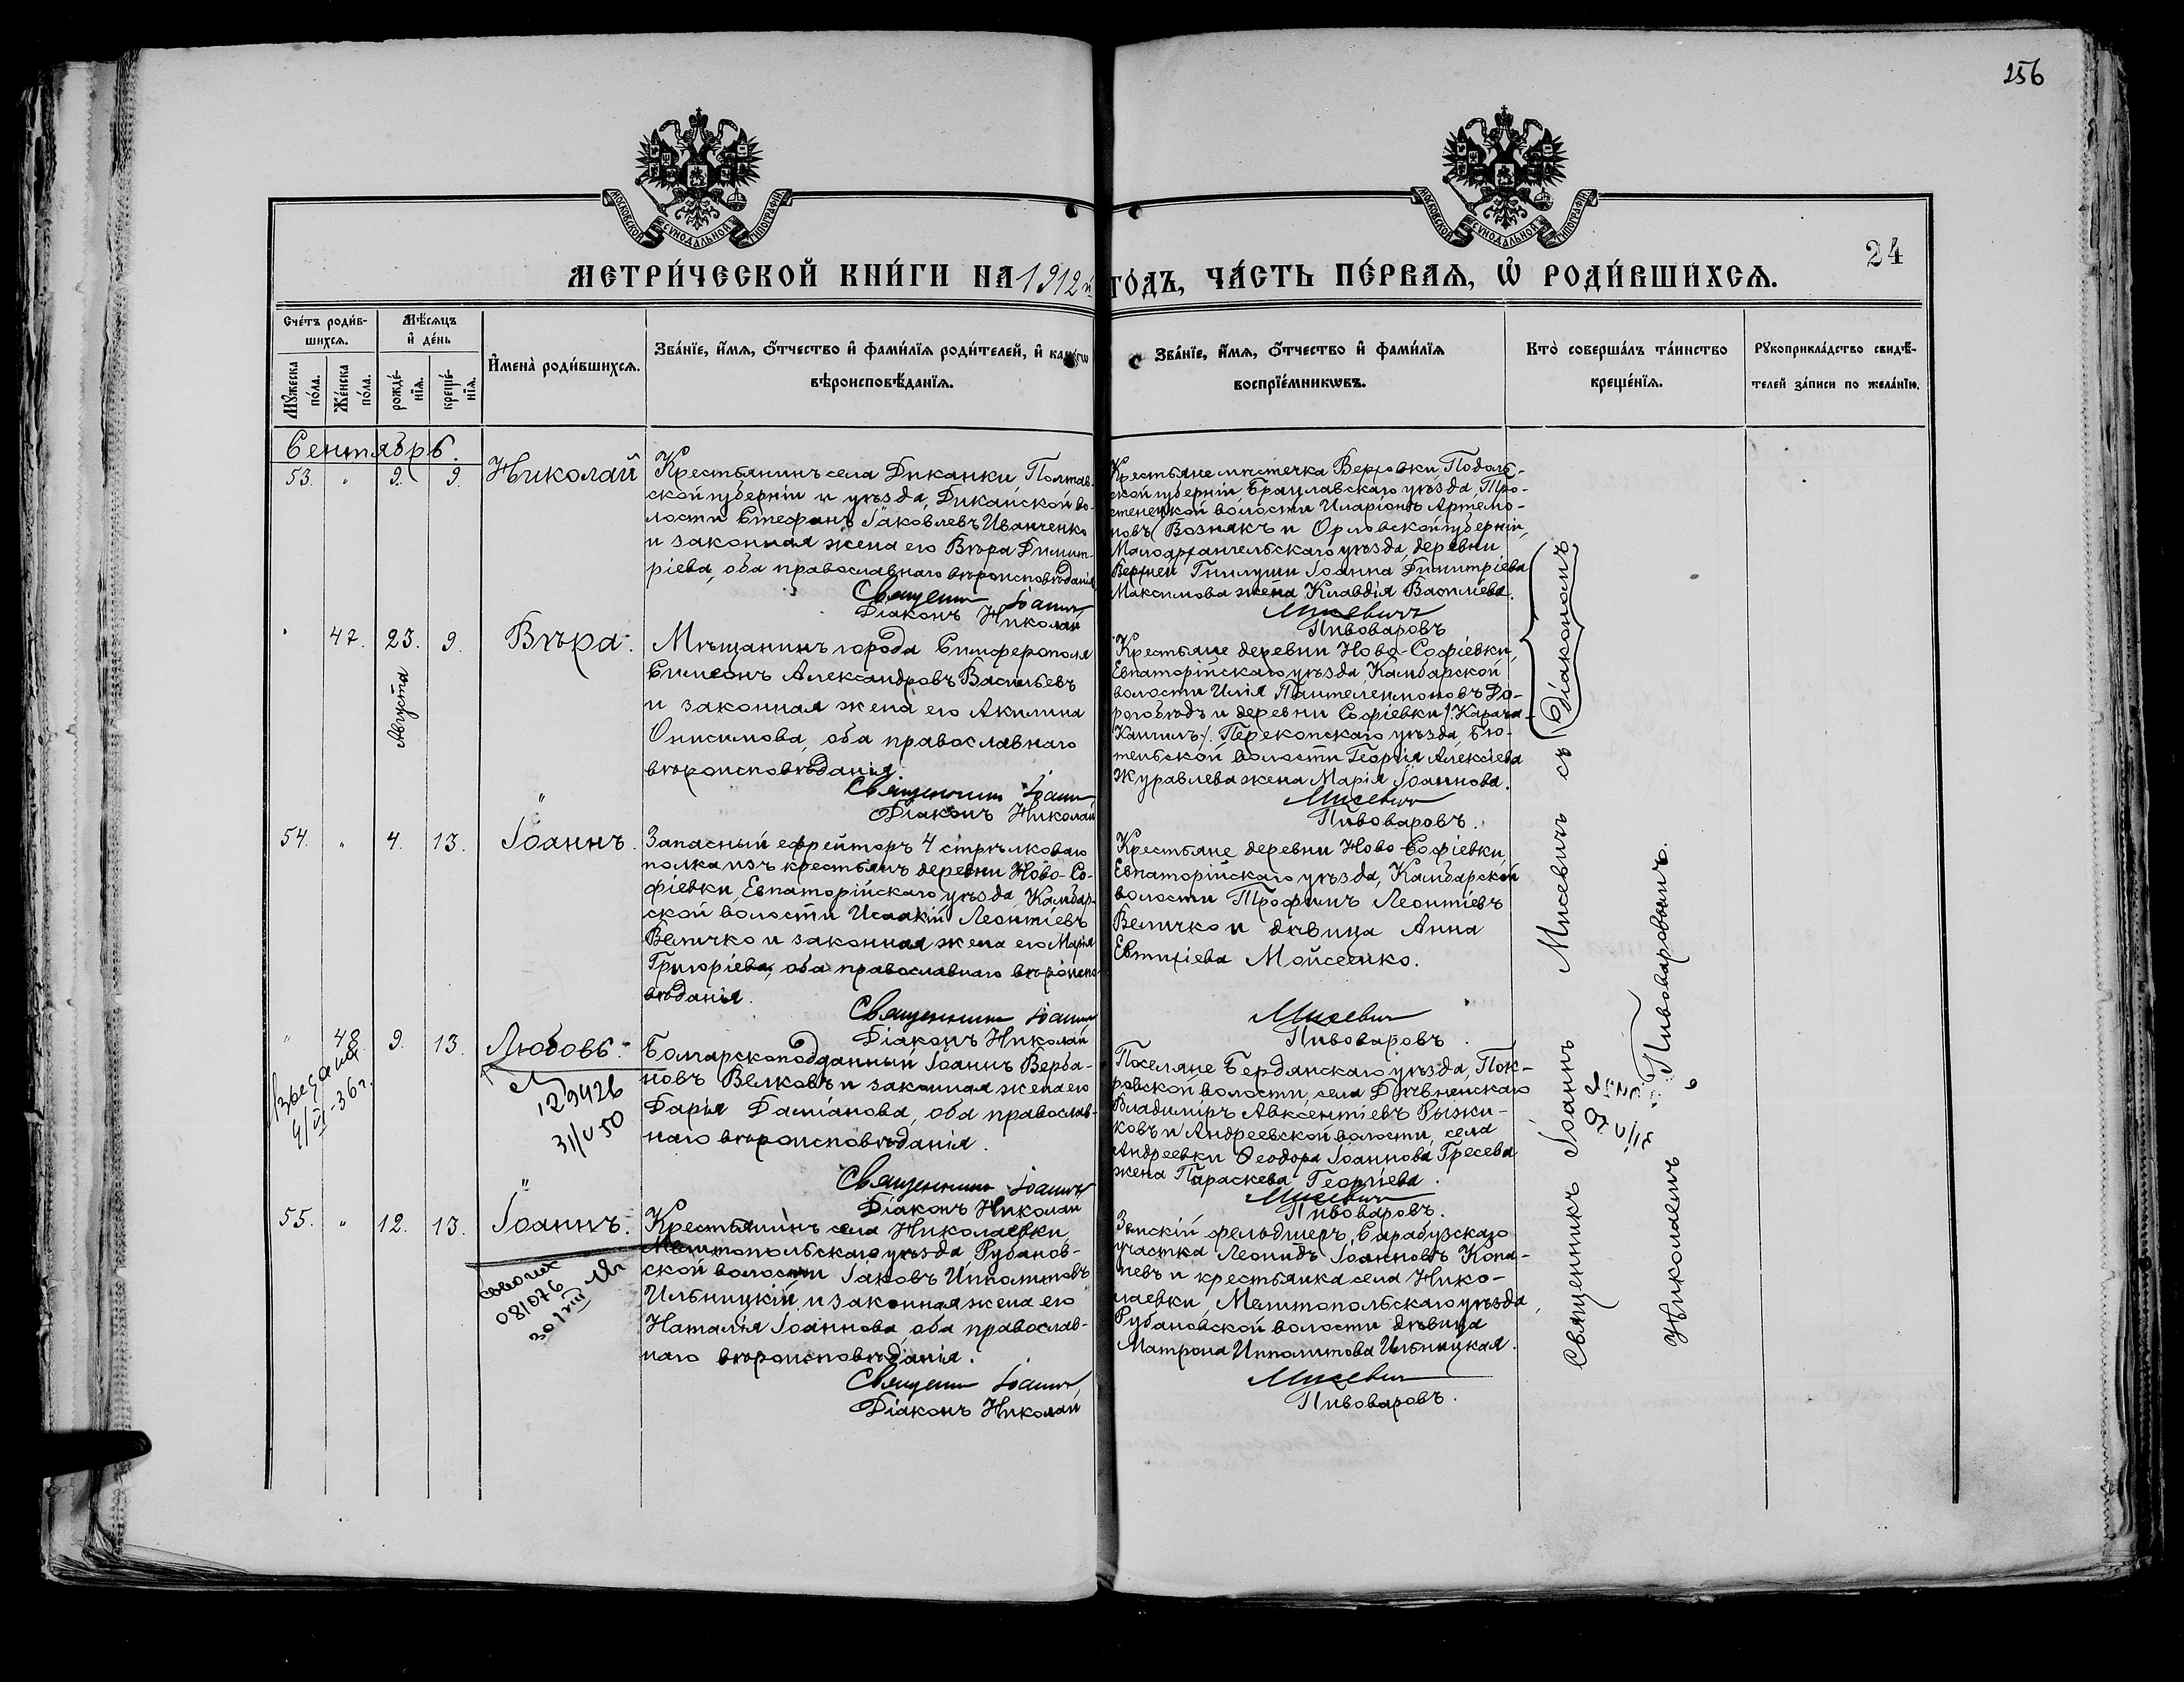 256
МОСКОВСКОЙ СѴНОДАЛЬНОЙ ТИПОГРАФІИ
МОСКОВСКОЙ СѴНОДАЛЬНОЙ ТИПОГРАФІИ
24
МЕТРИ́ЧЕСКОЙ КНИ́ГИ НА 1912 й ГО́ДЪ, ЧА́СТЬ ПЕ́РВАѦ, Ѡ҆ РОДИ́ВШИХСѦ.
Сче́тъ роди́в-
шихсѧ.
Мѣ́сѧцъ
и҆ де́нь
Мꙋ́жеска
по́ла.
Же́нска
по́ла.
рожде́-
нїѧ.
креще́-
нїѧ.
И҆мена̀ роди́вшихсѧ.
Зва́нїе, и҆́мѧ, ѻ҆́тчество и҆ фами́лїѧ роди́телей, и҆ како́гѡ
вѣроисповѣ́данїѧ.
Зва́нїе, и҆́мѧ, ѻ҆́тчество и҆ фами́лїѧ
воспрїе́мникѡвъ.
Кто̀ соверша́лъ та́инство
креще́нїѧ.
Рꙋкоприкла́дство свидѣ́-
телей за́писи по жела́нїю.
Сентябрь.
53. " 9. 9. Николай
Крестьянинъ села Диканки Полтав-
ской губерніи и уѣзда, Диканской во-
лости Стефанъ Іаковлевъ Иванченко
и законная жена его Вѣра Димит-
ріева, оба православнаго вѣроисповѣданія.
Священ Іоаннъ
Діаконъ Николай
Крестьяне мѣстечка Верховки Подоль-
ской губерніи, Брацлавскаго уѣзда, Тро-
стенецкой волости Иларіонъ Артемо-
новъ Вознякъ и Орловской губерніи,
Малоархангельскаго уѣзда, деревни
Верхней Гнилуши Іоанна Димитріева
Максимова жена Клавдія Васильева.
Мисевичъ
Пивоваровъ
" 47. 23. 9. Вѣра.
Августа
Мѣщанинъ города Симферополя
Симеонъ Александровъ Васильевъ
и законная жена его Акилина
Онисимова, оба православнаго
вѣроисповѣданія.
Священникъ Іоаннъ
Діаконъ Николай
Крестьяне деревни Ново-Софіевки,
Евпаторійскаго уѣзда, Камбарской
волости Илія Пантелеимоновъ До-
рогобѣдъ и деревни Софіевки /: Карача-
Кангилъ:/. Перекопскаго уѣзда, Бю-
тенской волости Георгія Алексіева
Журавлева жена Марія Іоаннова.
Мисевичъ
Пивоваровъ.
54. " 4. 13. Іоаннъ.
Запасный ефрейторъ 4 стрѣлковаго
полка изъ крестьянъ деревни Ново-Со-
фіевки, Евпаторійскаго уѣзда, Камбар-
ской волости Исаакій Леонтіевъ
Величко и законная жена его Марія
Григоріева, оба православнаго вѣроиспо-
вѣданія.
Священникъ Іоаннъ
Діаконъ Николай
Крестьяне деревни Ново-Софіевки,
Евпаторійскаго уѣзда, Камбарской
волости Трофимъ Леонтіевъ
Величко и дѣвица Анна
Евтихіева Мойсеенко.
Мисевичъ
Пивоваровъ.
" 48. 9. 13. Любовь.
4/VI-36 г.
129426
31/V 50
Болгарскоподданный Іоаннъ Верба-
новъ Велковъ и законная жена его
Дарія Даміанова, оба православ-
наго вѣроисповѣданія.
Священникъ Іоаннъ
Діаконъ Николай
Поселяне Бердянскаго уѣзда, Пок-
ровской волости, села Дѣвненскаго
Владиміръ Авксентіевъ Рыжи-
ковъ и Андреевской волости, села
Андреевки Ѳеодора Іоаннова Гресева
жена Параскева Георгіева.
Мисевичъ
Пивоваровъ.
55. " 12. 13. Іоаннъ.
081076
30/VIII
Крестьянинъ села Николаевки
Мелитопольскаго уѣзда Рубанов-
ской волости Іаковъ Ипполитовъ
Ильницкій и законная жена его
Наталія Іоаннова, оба православ-
наго вѣроисповѣданія.
Священ Іоаннъ
Діаконъ Николай
Земскій фельдшеръ, Сарабузскаго
участка Леонидъ Іоанновъ Копа-
невъ и крестьянка села Нико-
лаевки, Мелитопольскаго уѣзда,
Рубановской волости дѣвица
Матрона Ипполитова Ильницкая.
Мисевичъ
Пивоваровъ.
Священникъ Іоаннъ Мисевичъ съ Діакономъ
Николаемъ Пивоваровымъ.